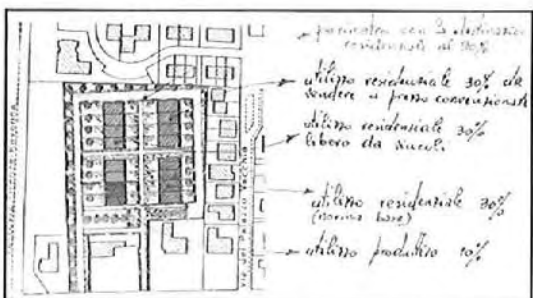 perimetro con la destinazione
residenziale al 90%
utilizzo residenziale 30% da
vendere a prezzo convenzionato
utilizzo residenziale 30%
libero da vincoli.
utilizzo residenziale 30%
(norma base)
utilizzo produttivo 10%
via del Palazzo Vecchio